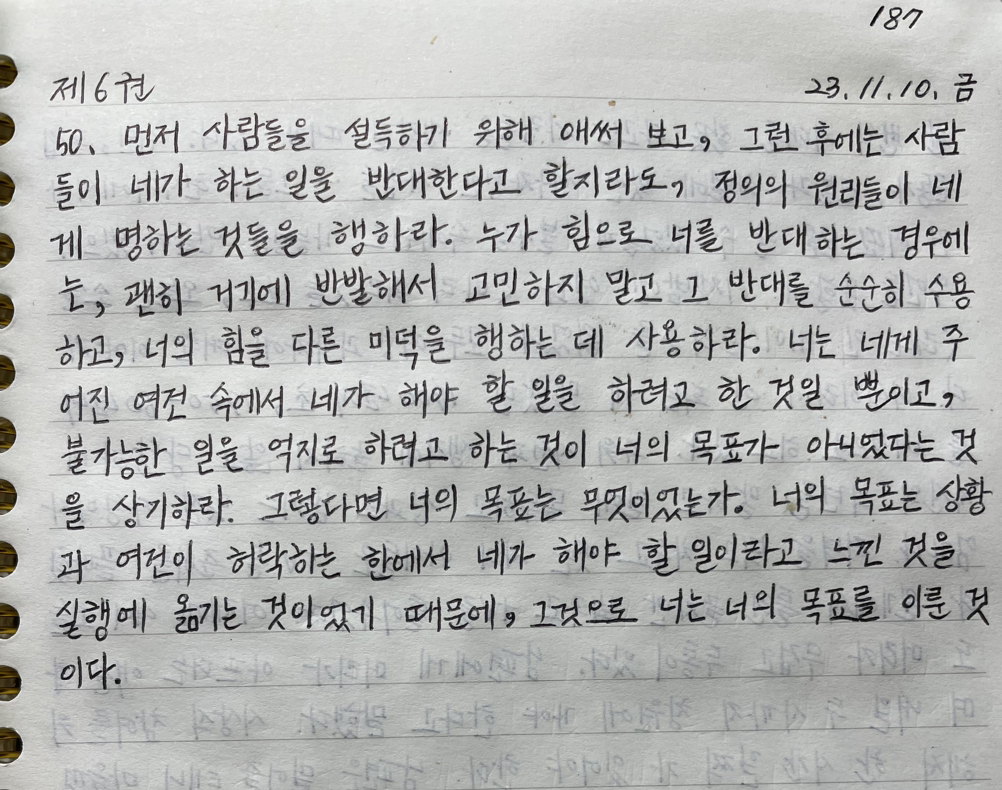 187
제6권 23.11.10. 금
50. 먼저 사람들을 설득하기 위해 애써 보고, 그런 후에는 사람
들이 네가 하는 일을 반대한다고 할지라도, 정의의 원리들이 네
게 명하는 것들을 행하라. 누가 힘으로 너를 반대하는 경우에
는, 괜히 거기에 반발해서 고민하지 말고 그 반대를 순순히 수용
하고, 너의 힘을 다른 미덕을 행하는 데 사용하라. 너는 네게 주
어진 여건 속에서 네가 해야 할 일을 하려고 한 것일 뿐이고,
불가능한 일을 억지로 하려고 하는 것이 너의 목표가 아니었다는 것
을 상기하라. 그렇다면 너의 목표는 무엇이었는가. 너의 목표는 상황
과 여건이 허락하는 한에서 네가 해야 할 일이라고 느낀 것을
실행에 옮기는 것이었기 때문에, 그것으로 너는 너의 목표를 이룬 것
이다.